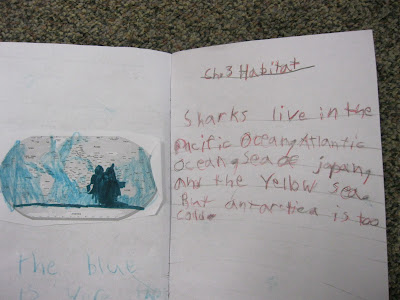 the blue
is
Ch. 3 Habitat
Sharks live in the
pacific Ocean, Atlantic
Ocean, Sea of japan,
and the Yellow sea.
But antarctica is too
cold.